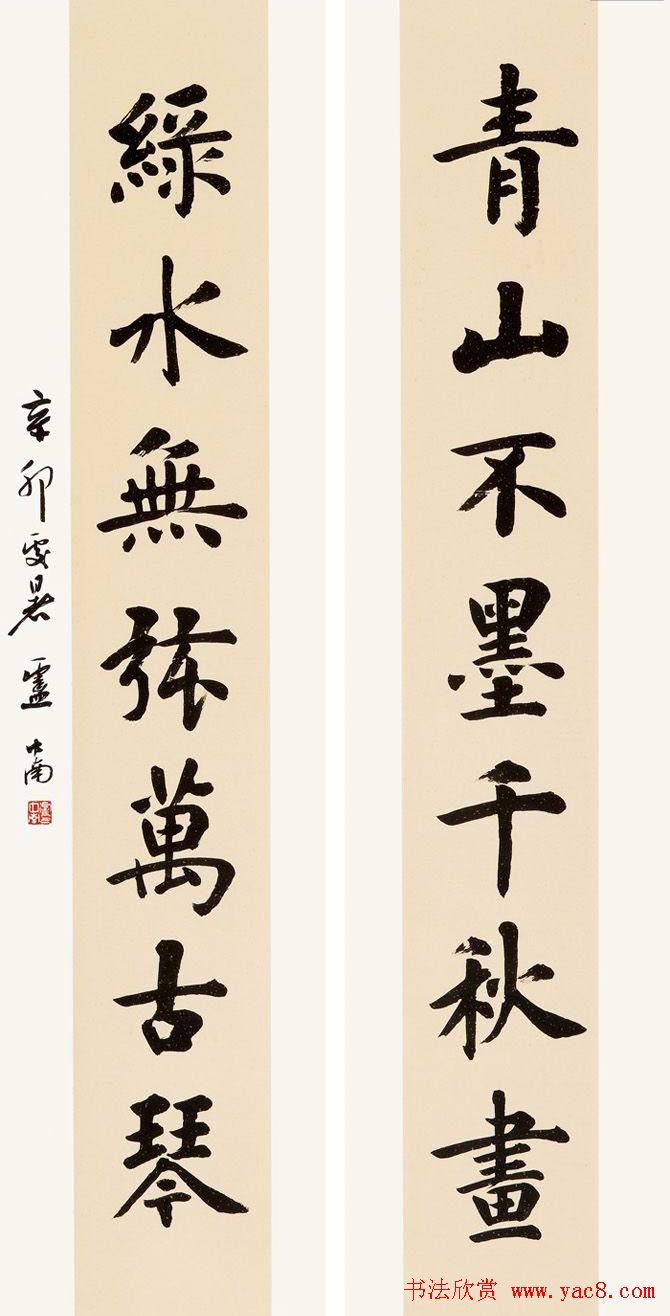 青山不墨千秋畫
綠水無弦萬古琴
辛卯處暑盧中南
书法欣赏 www.yac8.com